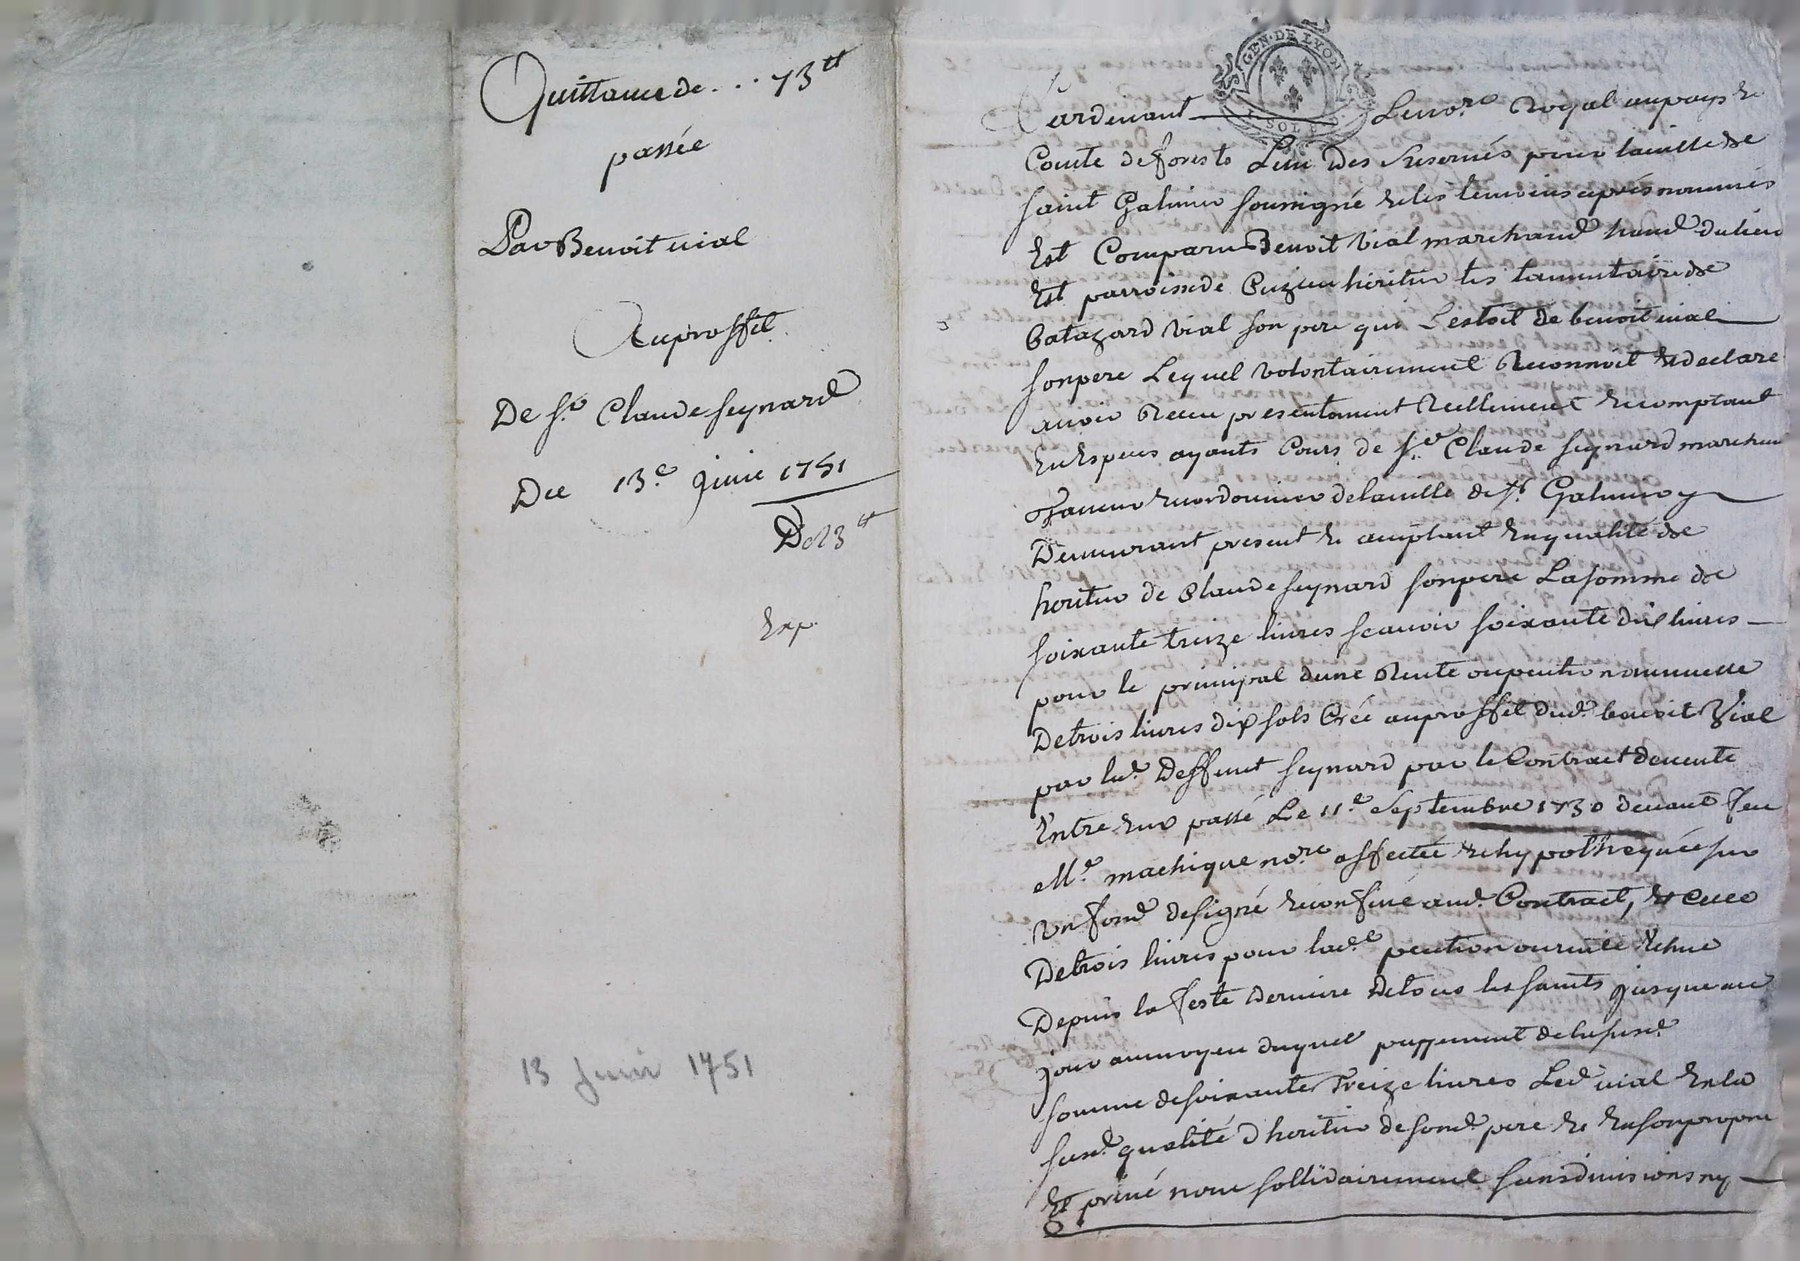 Quittance de . . . 73 tt
passée
Par Benoit vial
Au proffit
De Sr. Claude Seynard
Du 13e. juin 1751
D 23 tt
Exp.
13 Juin 1751
GEN. DE LYON
SOL
Pardevant Le nore. Royal au pays &
Comté de forests L'un des reservés pour la ville de
saint Galmier soussigné & les temoins après nommés
Est Comparu Benoit Vial marchand hand. du lieu
Est parroisse de Cuzieu heritier testamentaire de
Batazard vial son pere qui L'estoit de benoit vial
son pere Lequel volontairement Reconnoit & declare
avoir Receu presentement Reellement & comptant
En Especes ayants Cours de Sr. Claude Seynard marchand
Taneur & cordonnier de la ville de St Galmier y
Demeurant present & acceptant En qualité de
heritier de Claude Seynard son pere La somme de
soixante treize livres scavoir soixante dix livres
pour le principal d'une Rente ou pention annuelle
De trois livres dix sols Crée au proffit dud. benoit Vial
par led. Deffunt Seynard par le Contract de vente
Entre Eux passé Le 11e. Septembre 1730 devant feu
Me. machique nore. affectée & hypothequée sur
un fond designé & confiné aud. Contract, & Celle
De trois livres pour lade. pention ou rente Echue
Depuis la feste Derniere De tous les saints jusque au
jour au moyen duquel payement de la susd.
somme de soixante Treize livres Led. vial En la
susd. qualité d'heritier de sond. pere & En son propre
Et privé nom sollidairement sans divisions ny